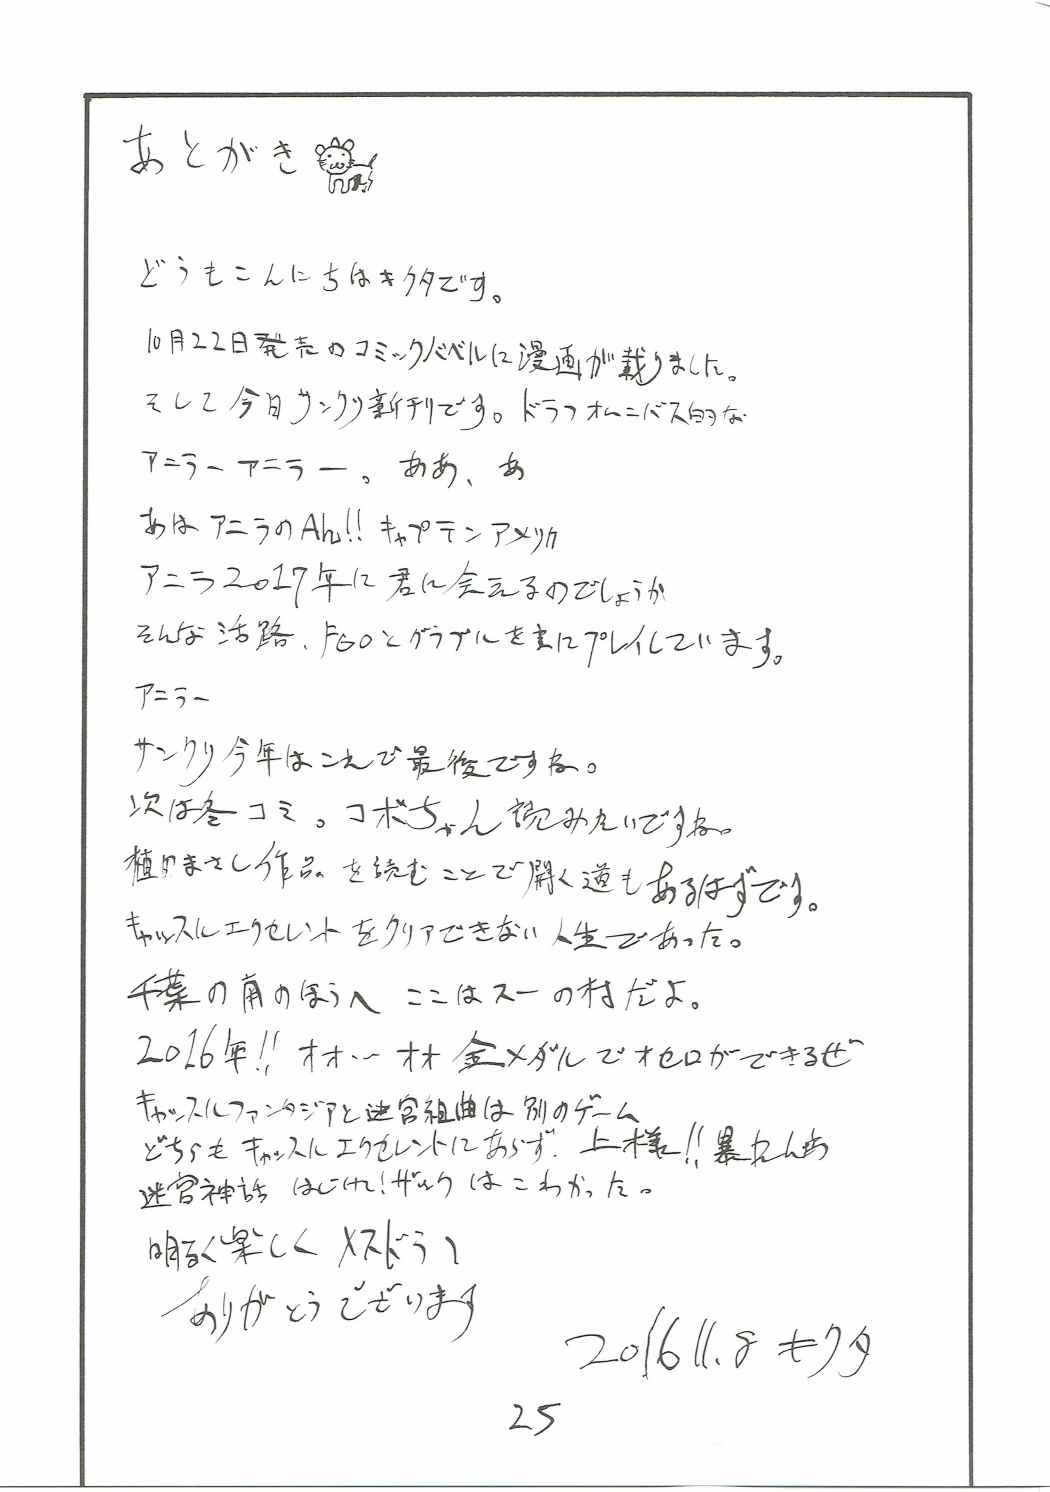 あとがき
どうもこんにちはキクタです。
10月22日発売のコミックバベルに漫画が載りました。
そして今日サンクリ新刊です。ドラフオムニバス的な
アニラーアニラー。ああ、あ
あはアニラのAh!!キャプテンアメリカ
アニラ2017年に君に会えるのでしょうか
そんな活路、FGOとグラブルを主にプレイしています。
アニラー
サンクリ今年はこれで最後ですね。
次は冬コミ。コボちゃん読みたいですね。
植田まさし作品を読むことで開く道もあるはずです。
キャッスルエクセレントをクリアできない人生であった。
千葉の南のほうへ ここはスーの村だよ。
2016年!!オオ…オオ金メダルでオセロができるぜ
キャッスルファンタジアと迷宮組曲は別のゲーム
どちらもキャッスルエクセレントにあらず。上様!!暴れんぼ
迷宮神話 はじけ!ザックはこわかった。
明るく楽しくメスドラフ
ありがとうございます
2016 11.8 キクタ
25